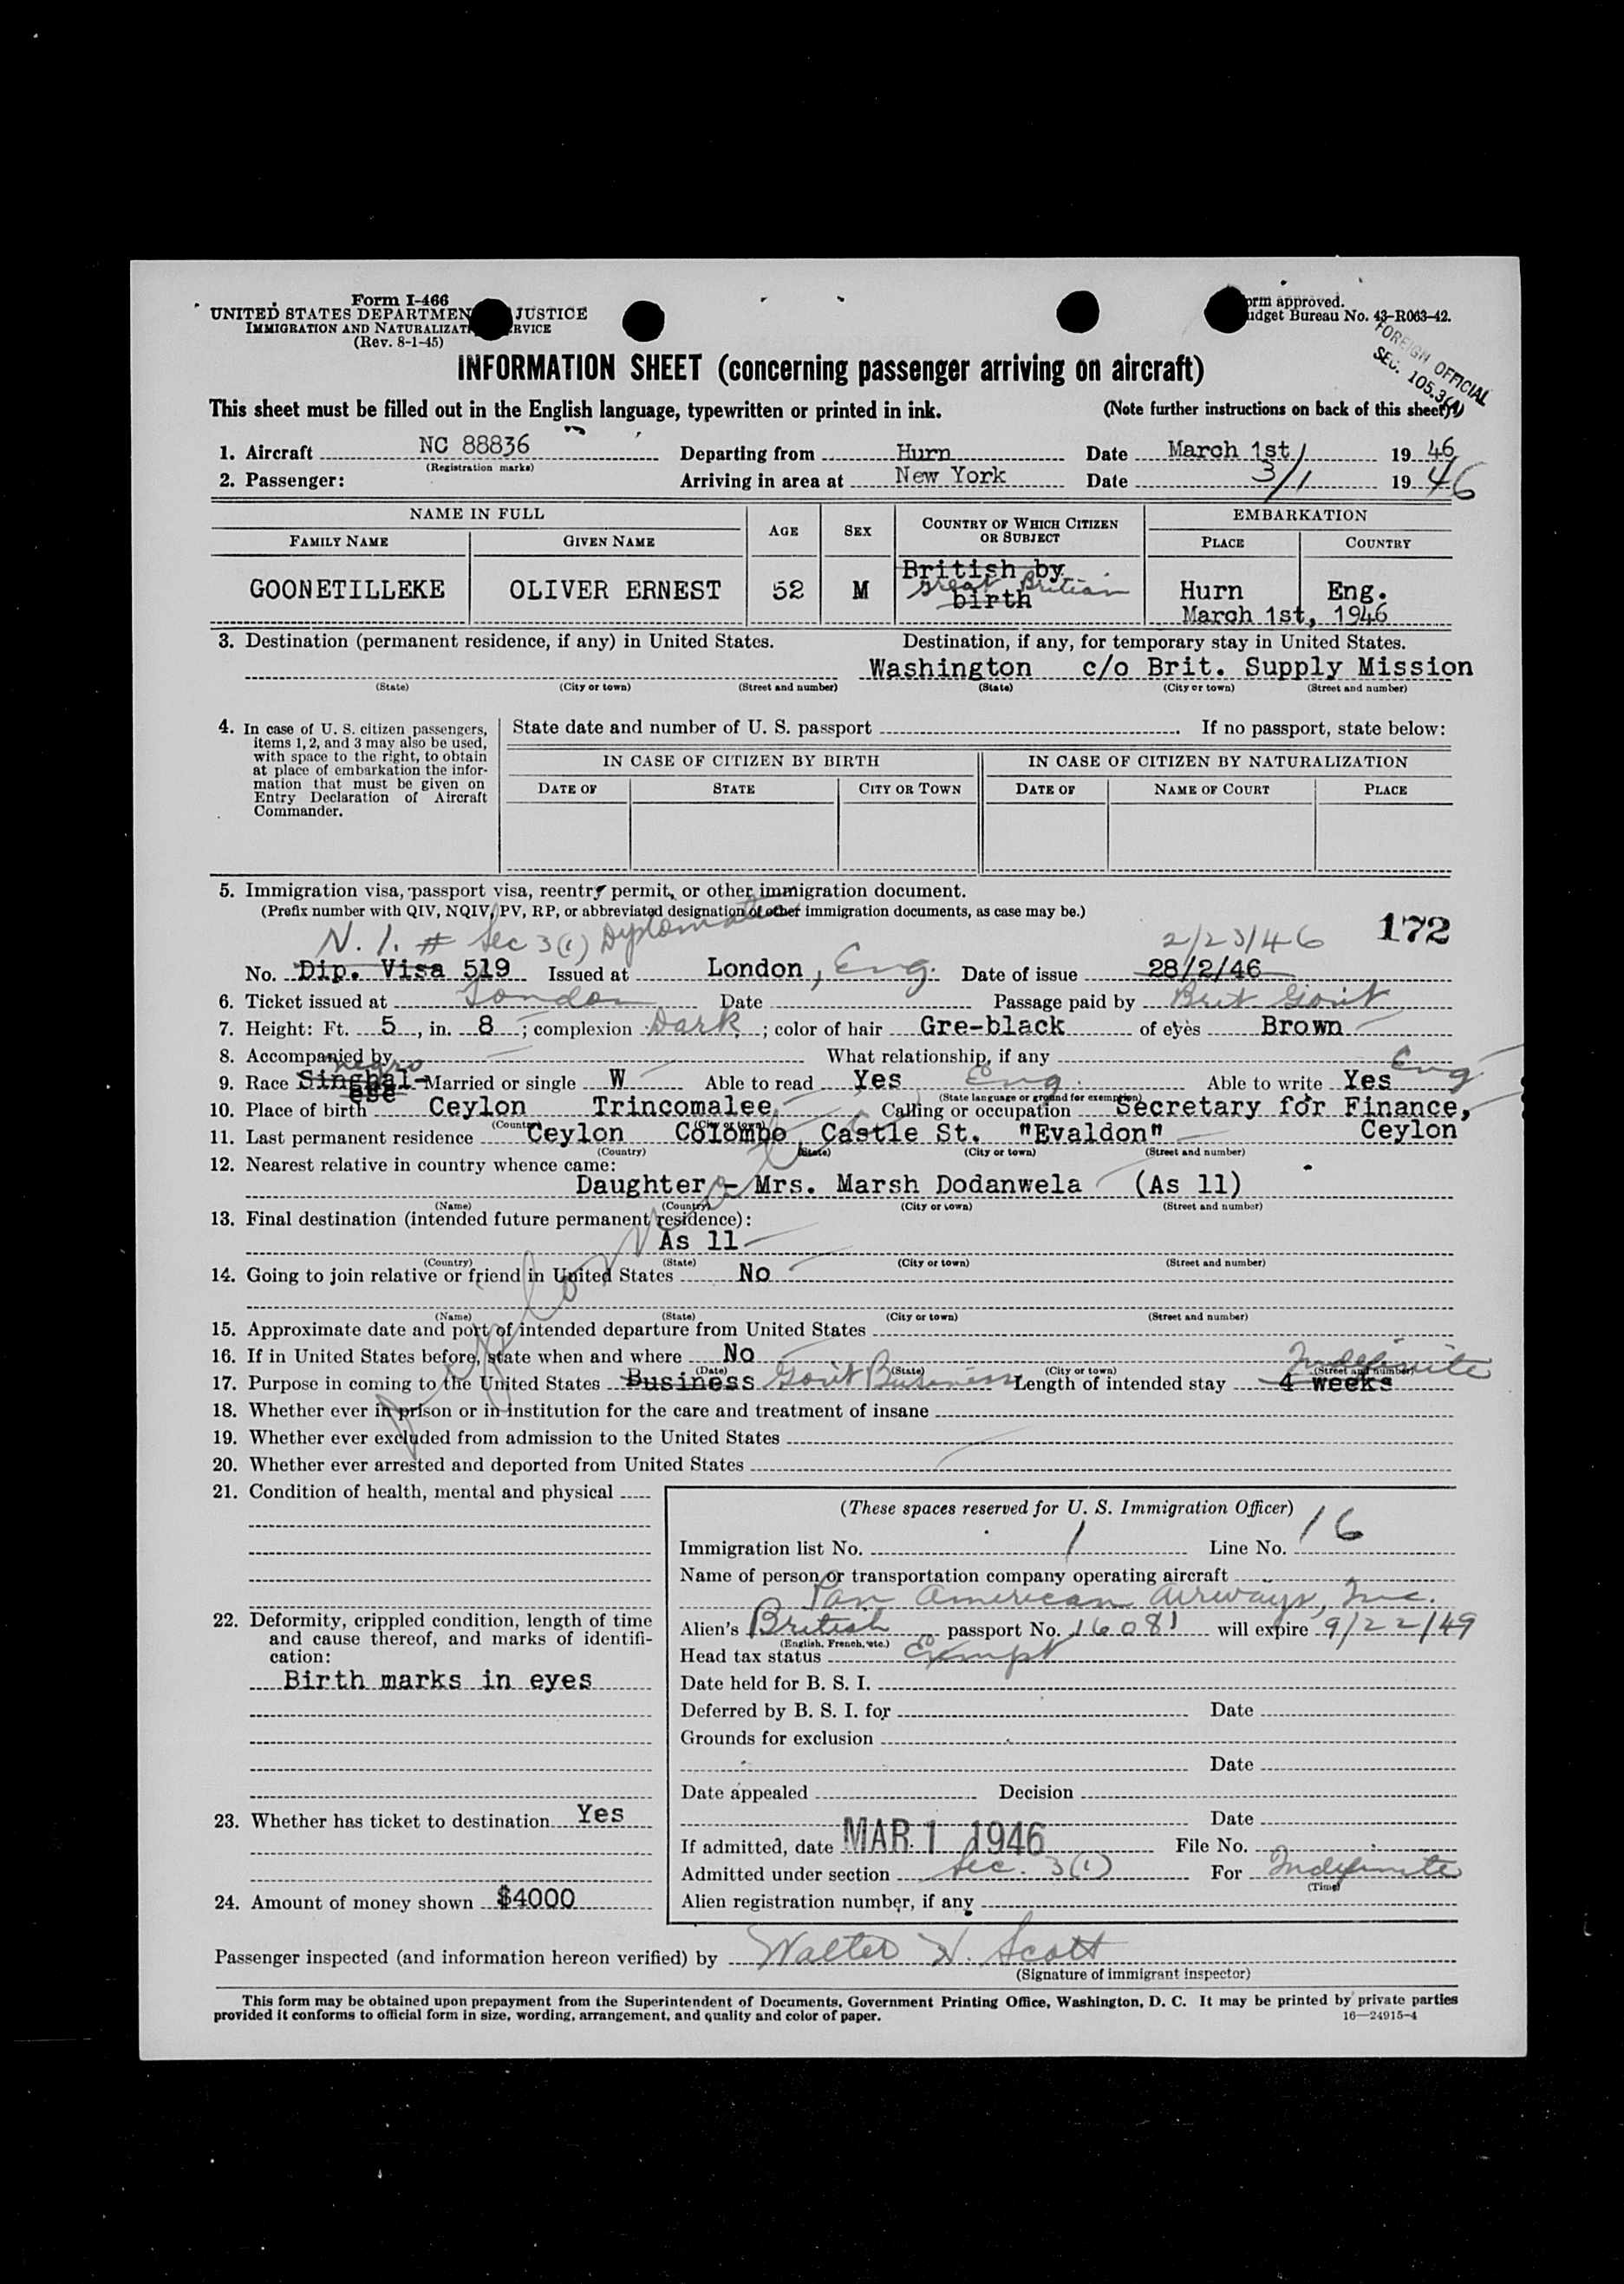 Form I-466
UNITED STATES DEPARTMEN JUSTICE
IMMIGRATION AND NATURALIZAT RVICE
(Rev. 8-1-45)
orm approved.
udget Bureau No. 43-R063-42.
FOREIGN OFFICIAL
SEC. 105.3(A)
INFORMATION SHEET (concerning passenger arriving on aircraft)
This sheet must be filled out in the English language, typewritten or printed in ink. (Note further instructions on back of this sheet)
1. Aircraft NC 88836 Departing from Hurn Date March 1st 19 46
(Registration marks)
2. Passenger: Arriving in area at New York Date 3/1 19 46
NAME IN FULL AGE SEX COUNTRY OF WHICH CITIZEN OR SUBJECT EMBARKATION
FAMILY NAME GIVEN NAME PLACE COUNTRY
British by
GOONETILLEKE OLIVER ERNEST 52 M great Britian Hurn Eng.
birth March 1st, 1946
3. Destination (permanent residence, if any) in United States. Destination, if any, for temporary stay in United States.
Washington c/o Brit. Supply Mission
(State) (City or town) (Street and number) (State) (City or town) (Street and number)
4. In case of U. S. citizen passengers, items 1, 2, and 3 may also be used, with space to the right, to obtain at place of embarkation the information that must be given on Entry Declaration of Aircraft Commander.
State date and number of U. S. passport . If no passport, state below:
IN CASE OF CITIZEN BY BIRTH IN CASE OF CITIZEN BY NATURALIZATION
DATE OF STATE CITY OR TOWN DATE OF NAME OF COURT PLACE
5. Immigration visa, passport visa, reentry permit, or other immigration document.
(Prefix number with QIV, NQIV, PV, RP, or abbreviated designation of other immigration documents, as case may be.)
N. I. # Sec 3(1) Diplomatic 2/23/46 172
No. Dip. Visa 519 Issued at London, Eng. Date of issue 28/2/46
6. Ticket issued at London Date Passage paid by Brit Govit
7. Height: Ft. 5, in. 8; complexion Dark; color of hair Gre-black of eyes Brown
8. Accompanied by What relationship, if any
negro Eng
9. Race Singhal- Married or single W Able to read Yes Eng Able to write Yes
ese (State language or ground for exemption)
10. Place of birth Ceylon Trincomalee Calling or occupation Secretary for Finance,
(Country) (City or town)
11. Last permanent residence Ceylon Colombo Castle St. "Evaldon" Ceylon
(Country) (State) (City or town) (Street and number)
12. Nearest relative in country whence came:
Daughter - Mrs. Marsh Dodanwela (As 11)
(Name) (Country) (City or town) (Street and number)
13. Final destination (intended future permanent residence):
As 11
(Country) (State) (City or town) (Street and number)
14. Going to join relative or friend in United States No
(Name) (State) (City or town) (Street and number)
15. Approximate date and port of intended departure from United States
16. If in United States before, state when and where No
(Date) (State) (City or town) (Street and number)
Indefinite
17. Purpose in coming to the United States Business Govit Business Length of intended stay 4 weeks
18. Whether ever in prison or in institution for the care and treatment of insane
19. Whether ever excluded from admission to the United States
20. Whether ever arrested and deported from United States
Diplomatic
21. Condition of health, mental and physical
22. Deformity, crippled condition, length of time and cause thereof, and marks of identification:
Birth marks in eyes
23. Whether has ticket to destination Yes
24. Amount of money shown $4000
(These spaces reserved for U. S. Immigration Officer)
Immigration list No. 1 Line No. 16
Name of person or transportation company operating aircraft
Pan American Airways, Inc.
Alien's British passport No. 16081 will expire 9/22/49
(English, French, etc.)
Head tax status Exempt
Date held for B. S. I.
Deferred by B. S. I. for Date
Grounds for exclusion
Date
Date appealed Decision
Date
If admitted, date MAR 1 1946 File No.
Admitted under section Sec. 3(1) For Indefinite
(Time)
Alien registration number, if any
Passenger inspected (and information hereon verified) by Walter H. Scott
(Signature of immigrant inspector)
This form may be obtained upon prepayment from the Superintendent of Documents, Government Printing Office, Washington, D. C. It may be printed by private parties
provided it conforms to official form in size, wording, arrangement, and quality and color of paper. 16—24915-4